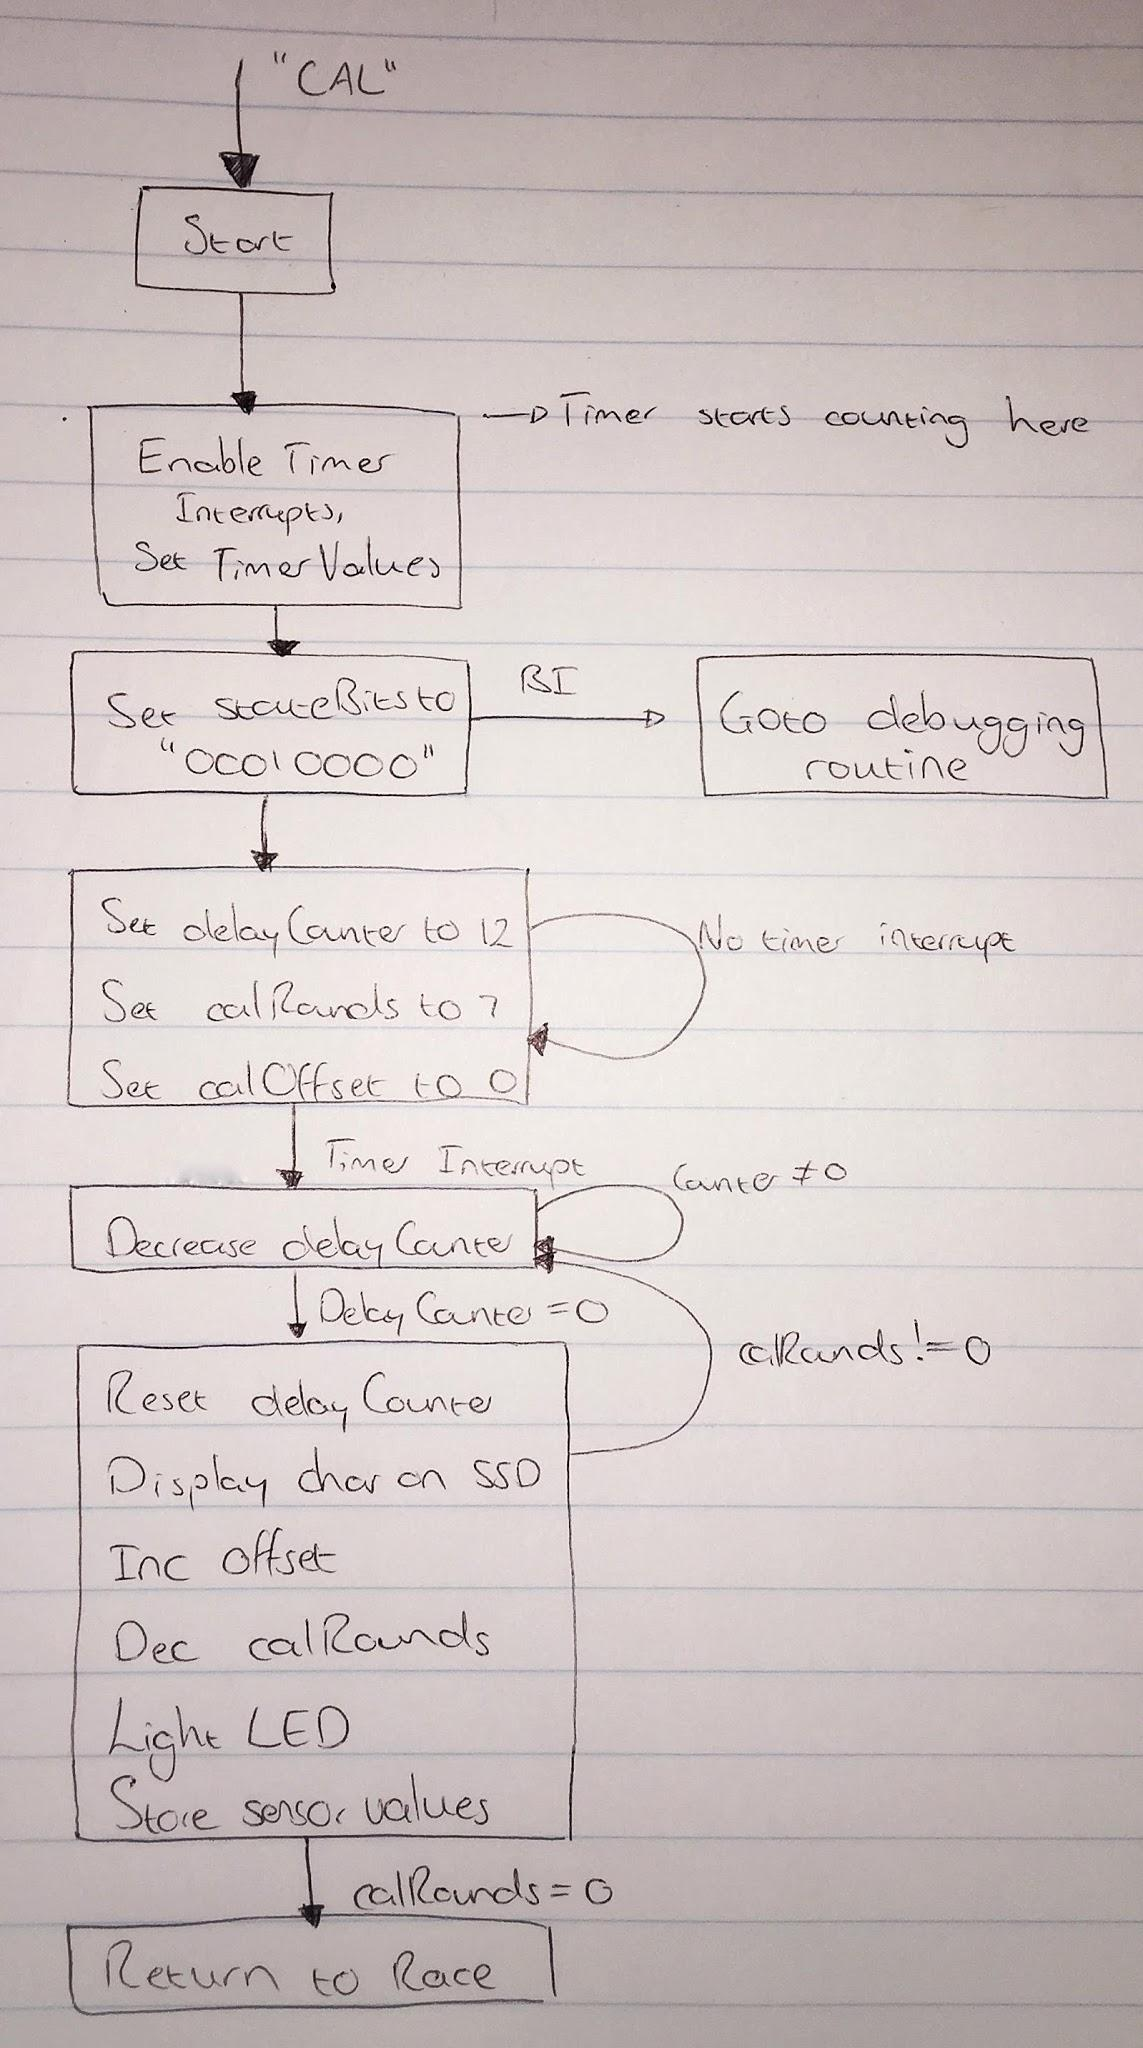 "CAL"
Start
Timer starts counting here
Enable Timer
Interrupts,
Set Timer Values
Set stateBits to
"00010000"
BI
Goto debugging
routine
Set delayCounter to 12
Set calRounds to 7
Set calOffset to 0
No timer interrupt
Timer Interrupt
Counter ≠ 0
Decrease delayCounter
DelayCounter = 0
calRounds != 0
Reset delayCounter
Display char on SSD
Inc offset
Dec calRounds
Light LED
Store sensor values
calRounds = 0
Return to Race